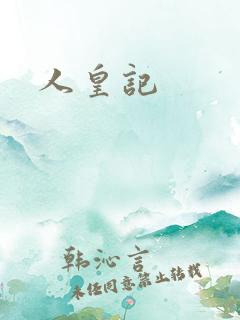 人皇記
韩沁言
未经同意禁止转载